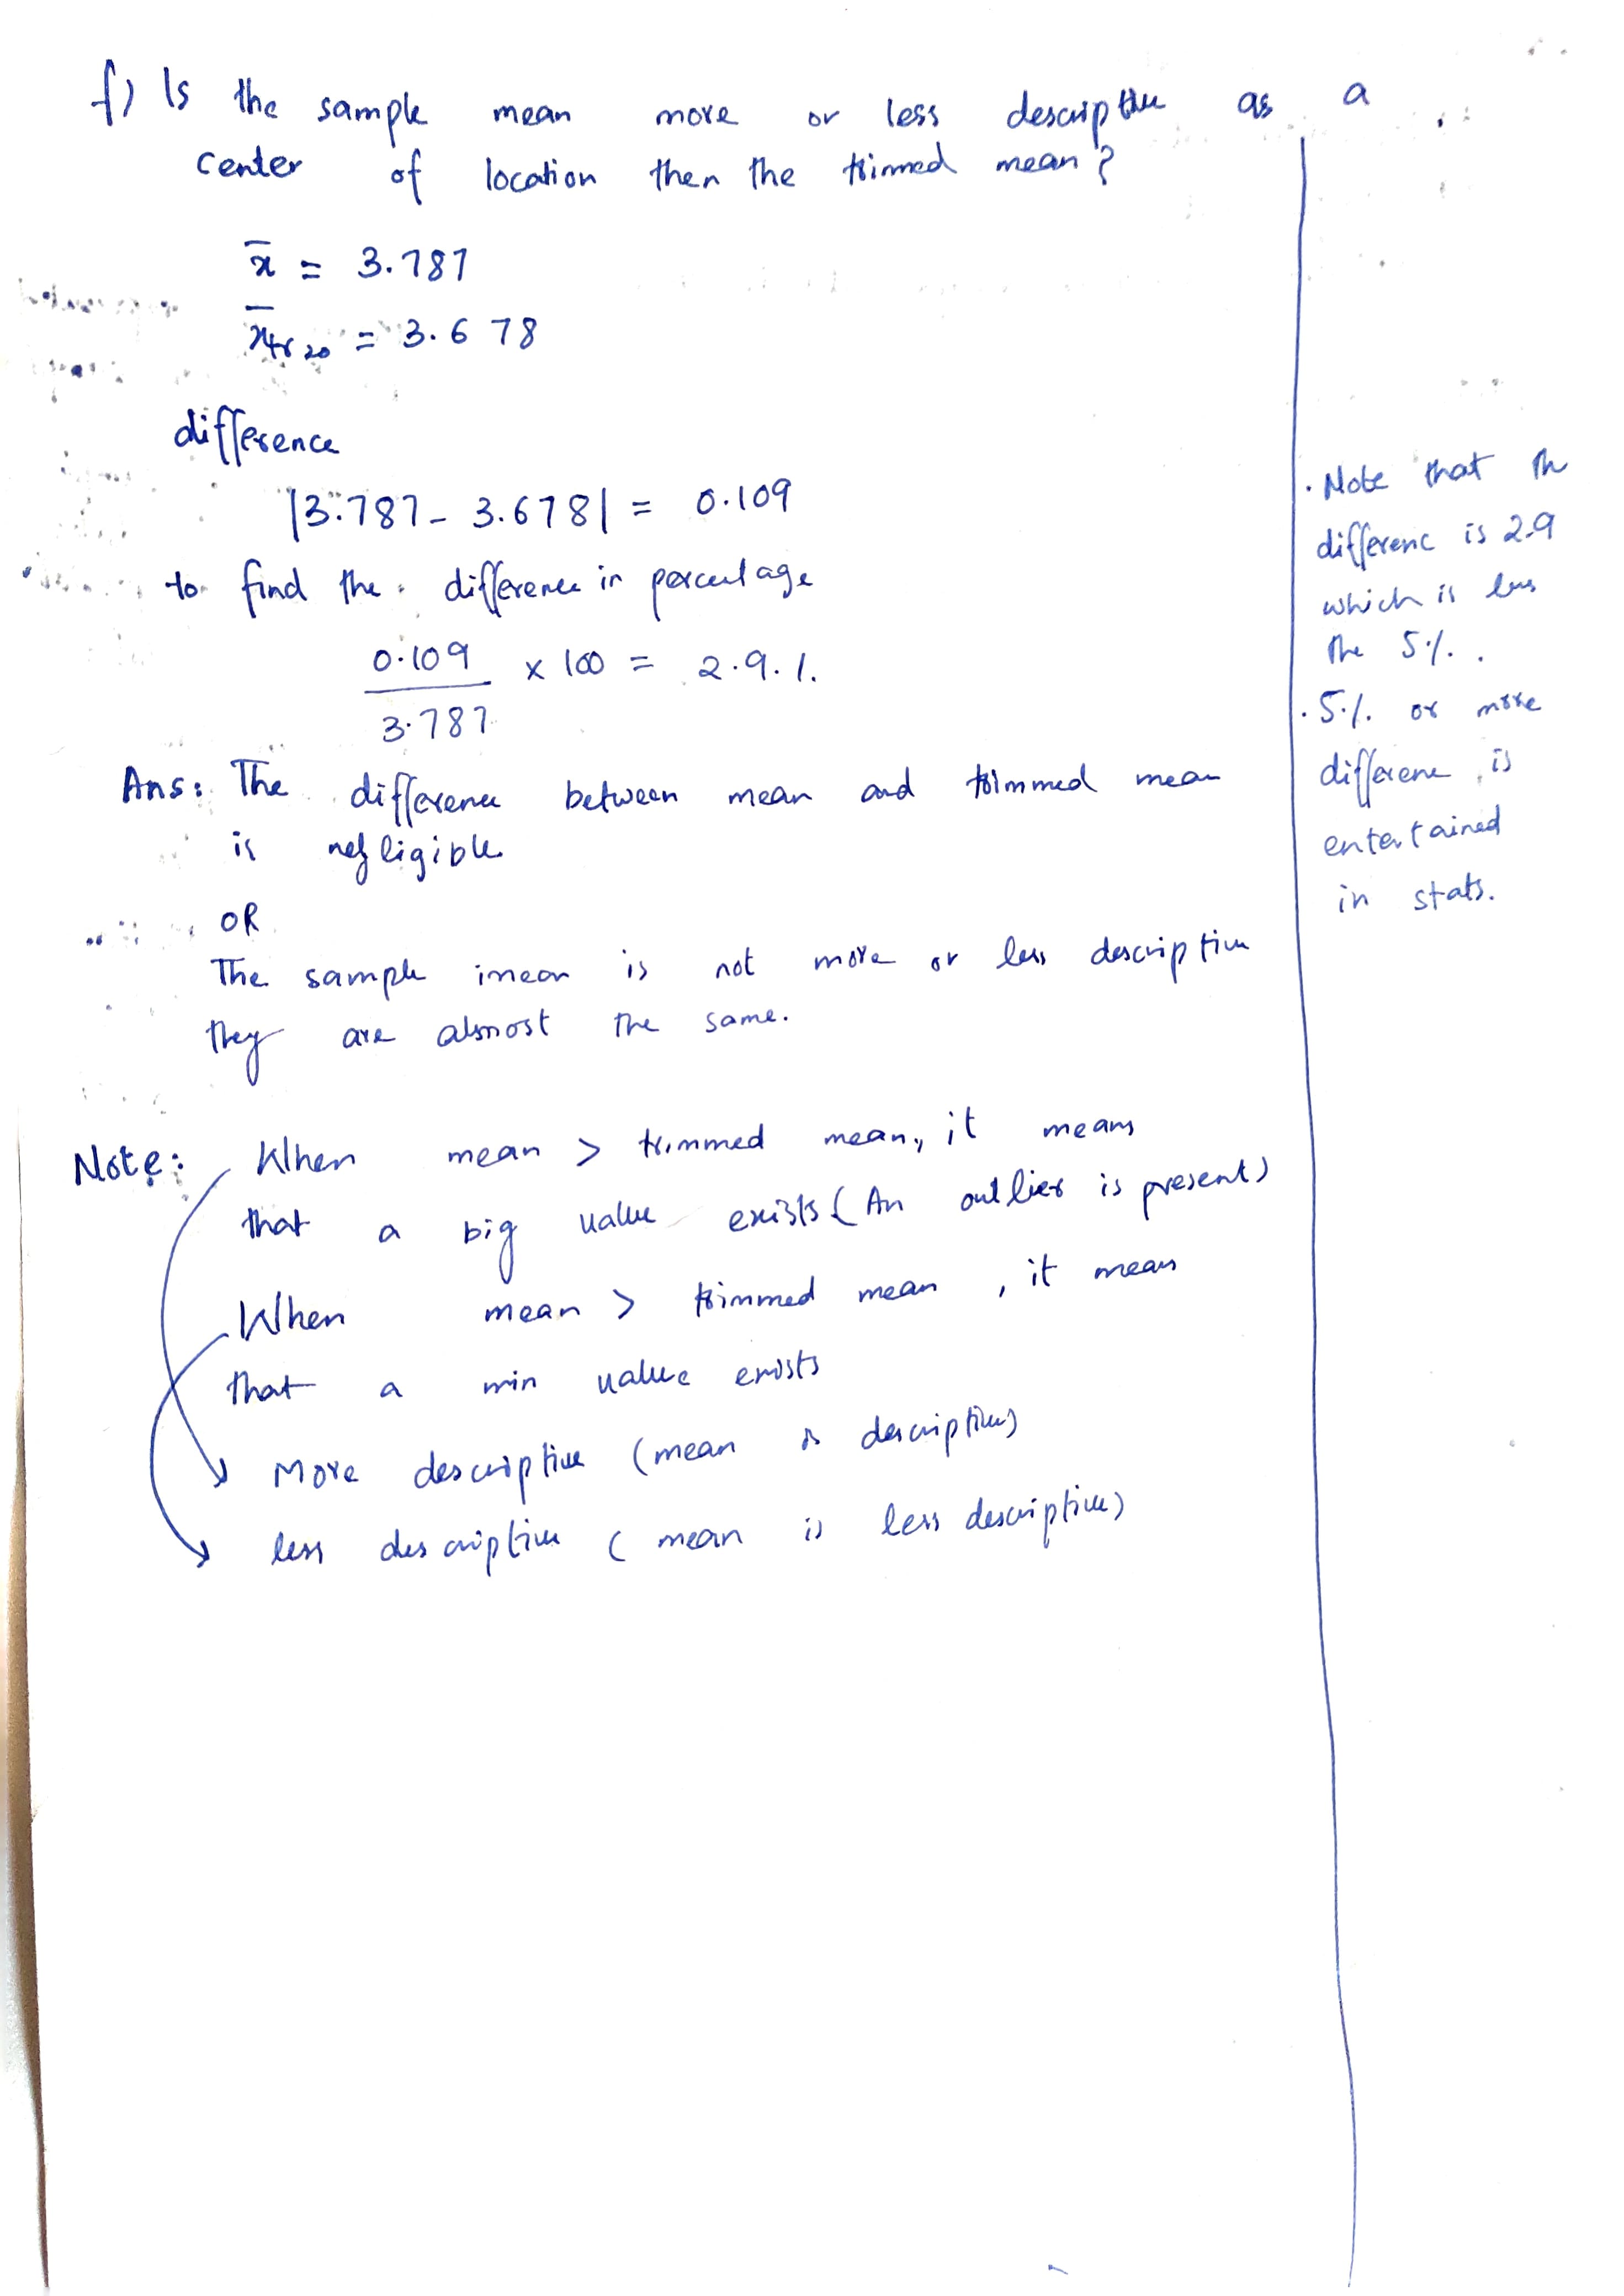 f) Is the sample mean more or less descriptive as a
center of location then the trimmed mean?
x̄ = 3.787
x̄tr 20 = 3.678
difference
|3.787 - 3.678| = 0.109
to find the difference in percentage
0.109
× 100 = 2.9.%.
3.787
Ans: The difference between mean and trimmed mean
is negligible.
OR
The sample mean is not more or less descriptive
they are almost the same.
Note: When mean > trimmed mean, it means
that a big value exists (An outlier is present)
When mean > trimmed mean, it mean
that a min value exists
More descriptive (mean is descriptive)
less descriptive (mean is less descriptive)
· Note that th
differenc is 2.9
which is less
the 5%.
· 5%. or more
differene is
entertained
in stats.